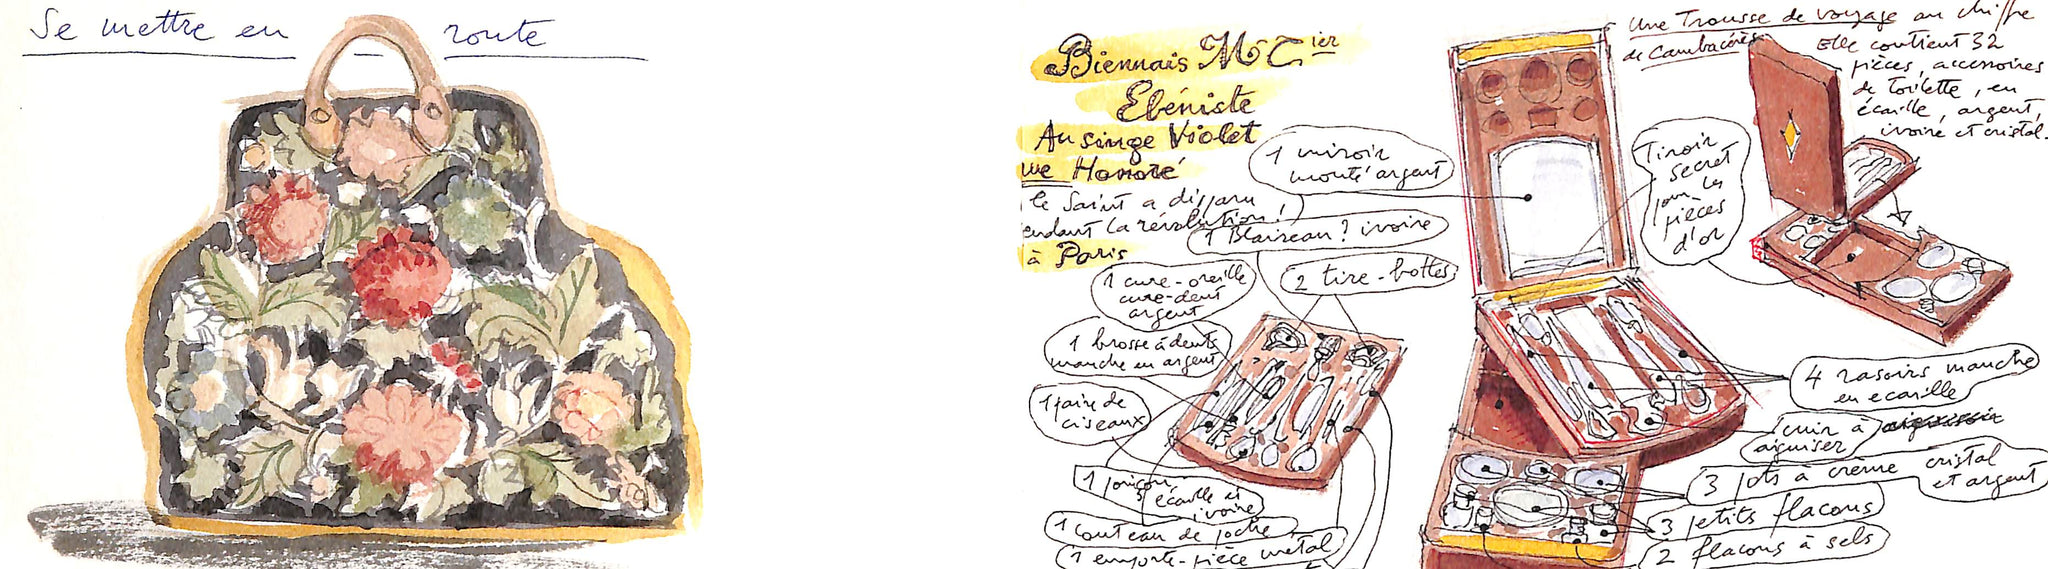 Se mettre en route
Biennais Md Tier
Ebéniste
Au singe Violet
rue Honoré
le Saint a disparu
pendant la révolution !
à Paris
une Trousse de voyage au chiffre
de Cambacérès
Elle contient 32
pièces, accessoires
de toilette, en
écaille, argent,
ivoire et cristal.
1 miroir
monté argent
Tiroir
secret
pour les
pièces
d'or
1 Blaireau ? ivoire
2 tire-bottes
1 cure-oreille
cure-dent
argent
1 brosse à dents
manche en argent
1 paire de
ciseaux
1 poinçon,
écaille et
ivoire
1 couteau de poche
1 emporte-pièce metal
4 rasoirs manche
en ecaille
cuir à
aiguiser
3 pots à crème cristal
et argent
3 petits flacons
2 flacons à sels